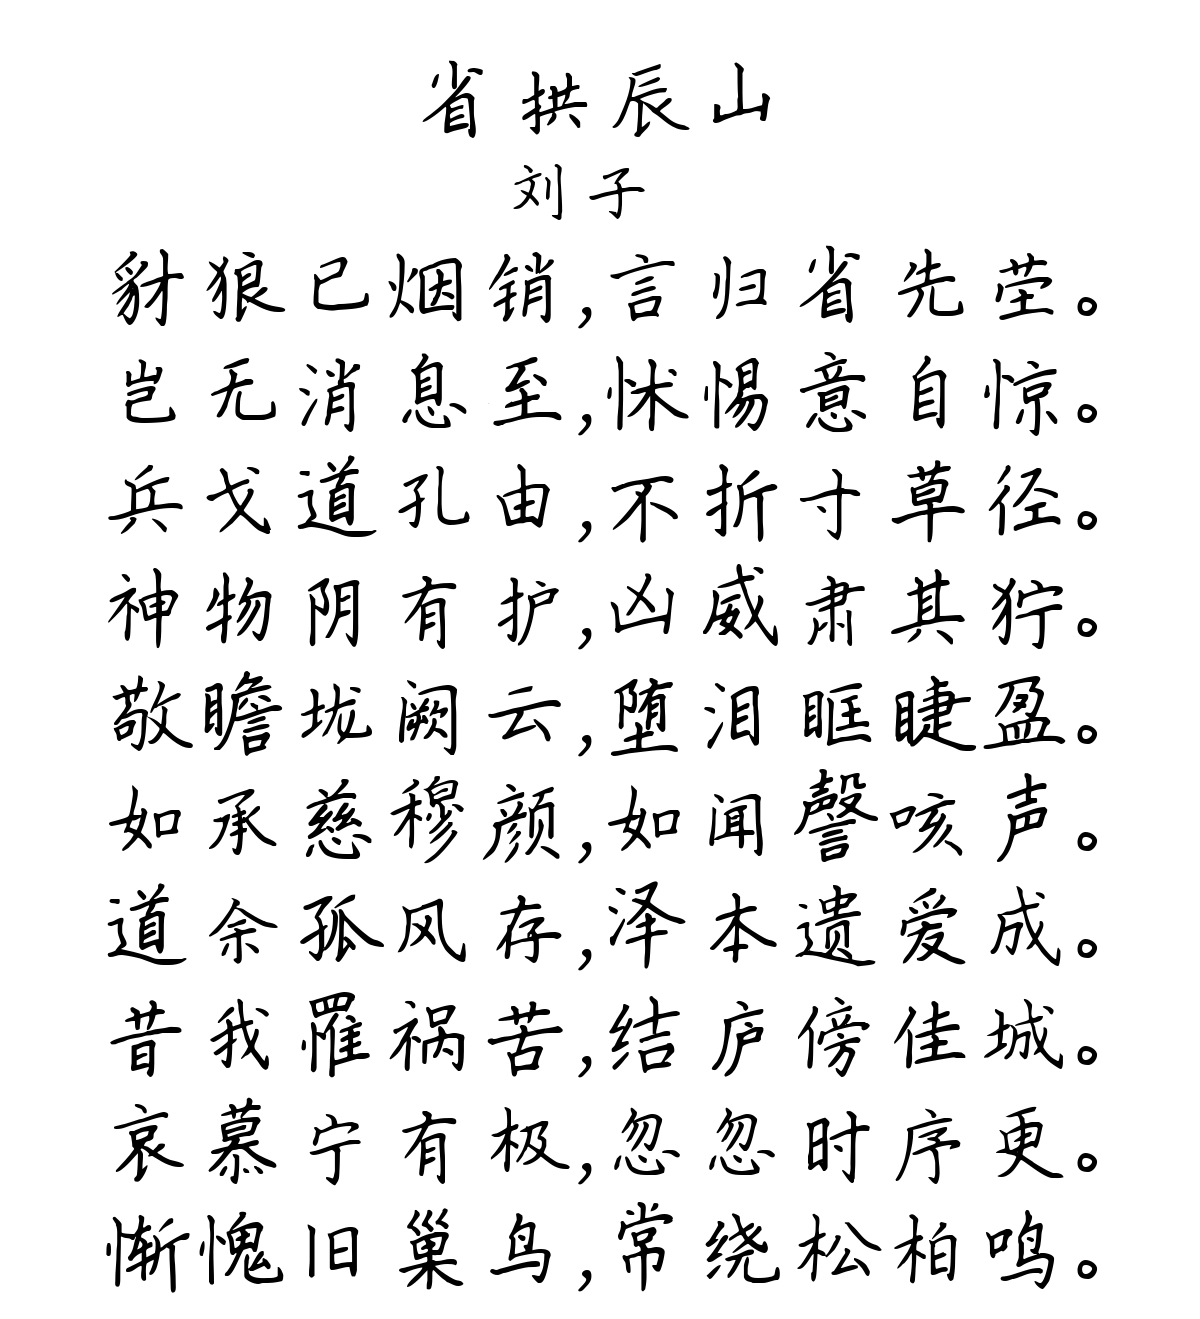 省拱辰山
刘子
豺狼已烟销,言归省先茔。
岂无消息至,怵惕意自惊。
兵戈道孔由,不折寸草径。
神物阴有护,凶威肃其狞。
敬瞻垅阙云,堕泪眶睫盈。
如承慈穆颜,如闻謦咳声。
道余孤风存,泽本遗爱成。
昔我罹祸苦,结庐傍佳城。
哀慕宁有极,忽忽时序更。
惭愧旧巢鸟,常绕松柏鸣。